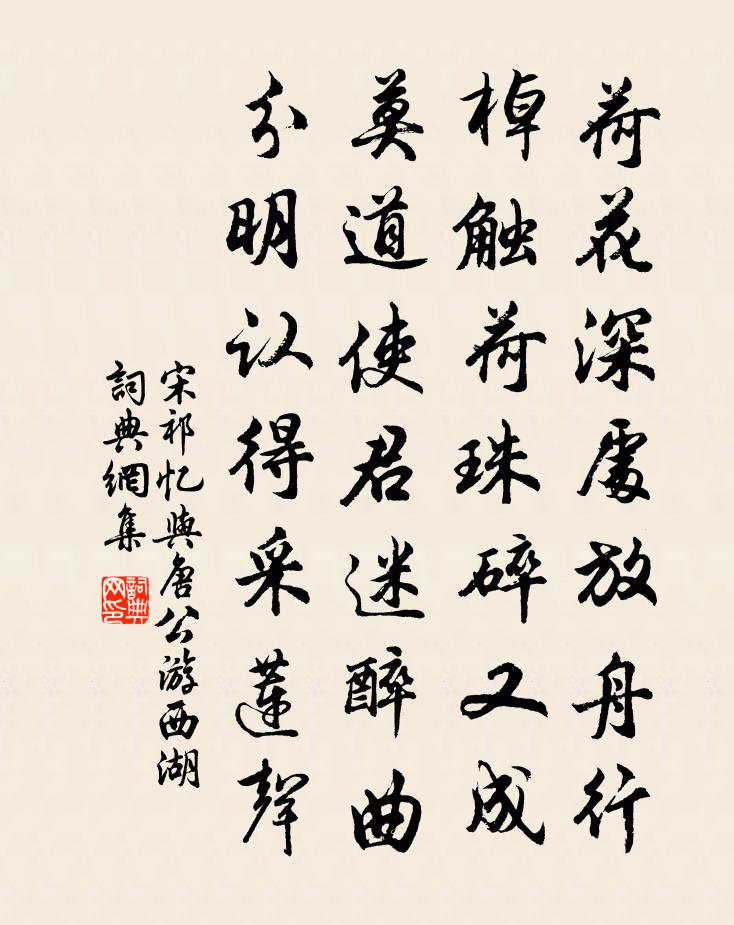 荷花深處放舟行
棹触荷珠碎又成
莫道使君迷醉曲
分明认得采蓮聲
宋祁忆與唐公游西湖
詞典網集
詞典
网印